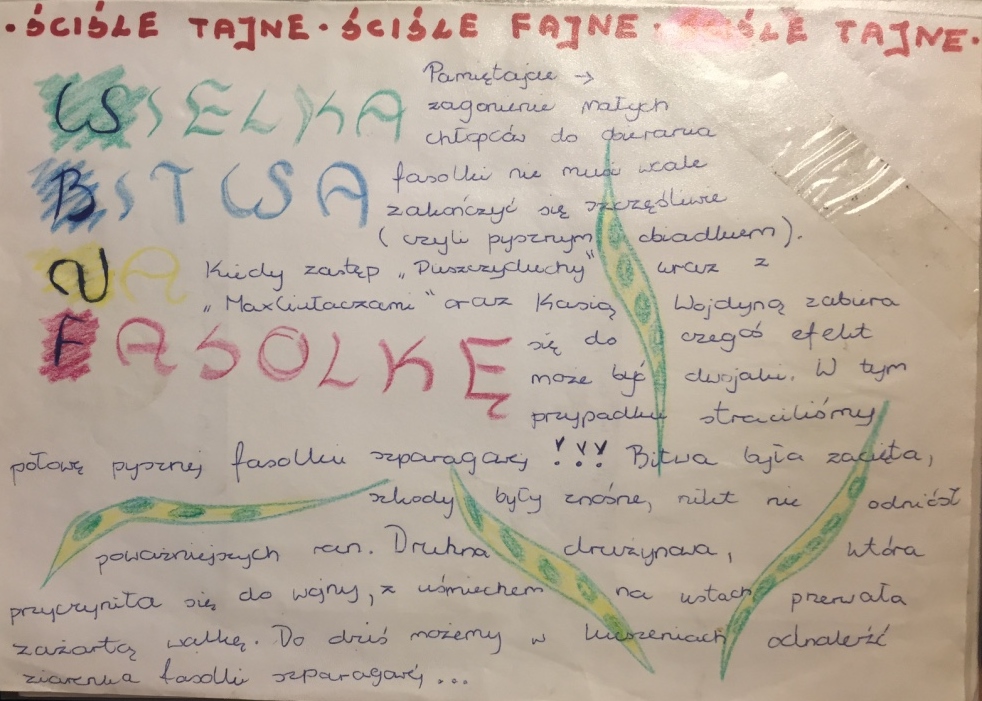 • ŚCIŚLE TAJNE • ŚCIŚLE FAJNE • ŚCIŚLE TAJNE •
WSIELKA
BITWA
NA
FASOLKĘ
Pamiętajcie →
zagonienie małych
chłopców do obierania
fasolki nie musi wcale
zakończyć się szczęśliwie
(czyli pysznym obiadkiem).
Kiedy zastęp „Puszczyduchy" wraz z
„MaxCiułaczami" oraz Kasią Wojdyną zabiera
się do czegoś efekt
może być dwojaki. W tym
przypadku straciliśmy
połowę pysznej fasolki szparagowej !!! Bitwa była zacięta,
szkody były znośne, nikt nie odniósł
poważniejszych ran. Druhna drużynowa, która
przyczyniła się do wojny, z uśmiechem na ustach przerwała
zażartą walkę. Do dziś możemy w kieszeniach odnaleźć
ziarenka fasolki szparagowej ...